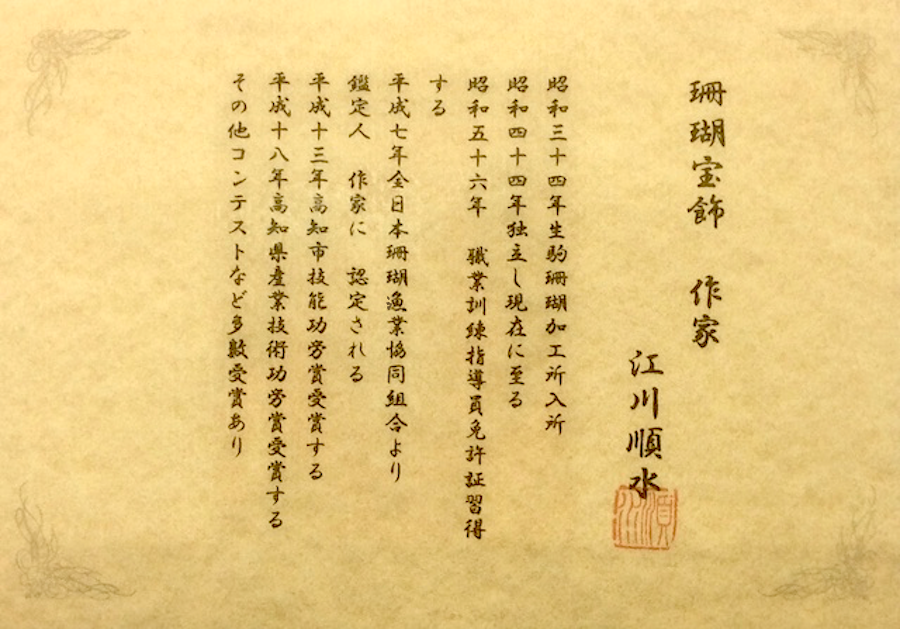 珊瑚宝飾 作家
江川順水
昭和三十四年生駒珊瑚加工所入所
昭和四十四年独立し現在に至る
昭和五十六年 職業訓練指導員免許証習得
する
平成七年全日本珊瑚漁業協同組合より
鑑定人 作家に 認定される
平成十三年高知市技能功労賞受賞する
平成十八年高知県産業技術功労賞受賞する
その他コンテストなど多数受賞あり
順水